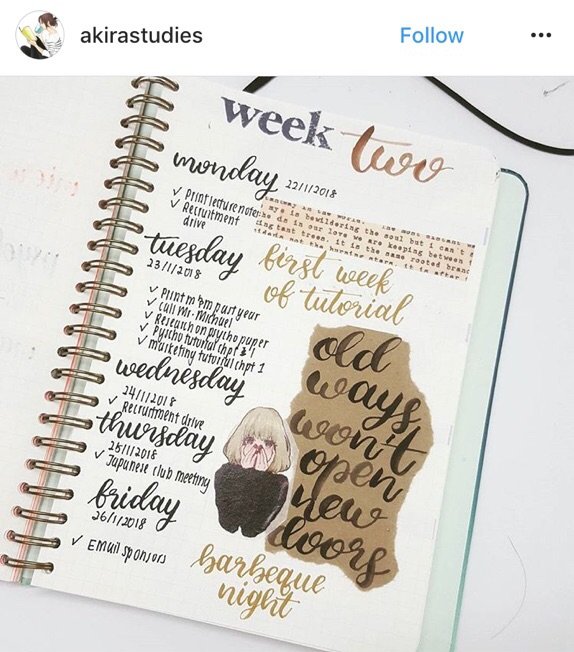 akirastudies
Follow
week two
monday 22/1/2018
✓ Print lecture notes
✓ Recruitment
drive
my is bewildering the soul but i can
in our love we are keeping between
it is the same rooted
it is after
tuesday
23/1/2018
first week
of tutorial
✓ Print m'pm past year
✓ Call Mr. Michael
✓ Research on psycho paper
✓ Psycho tutorial chpt
✓ marketing tutorial chpt 1
wednesday
24/1/2018
✓ Recruitment drive
thursday
25/1/2018
✓ Japanese club meeting
friday
26/1/2018
✓ Email sponsors
old
ways
won't
open
new
doors
barbeque
night